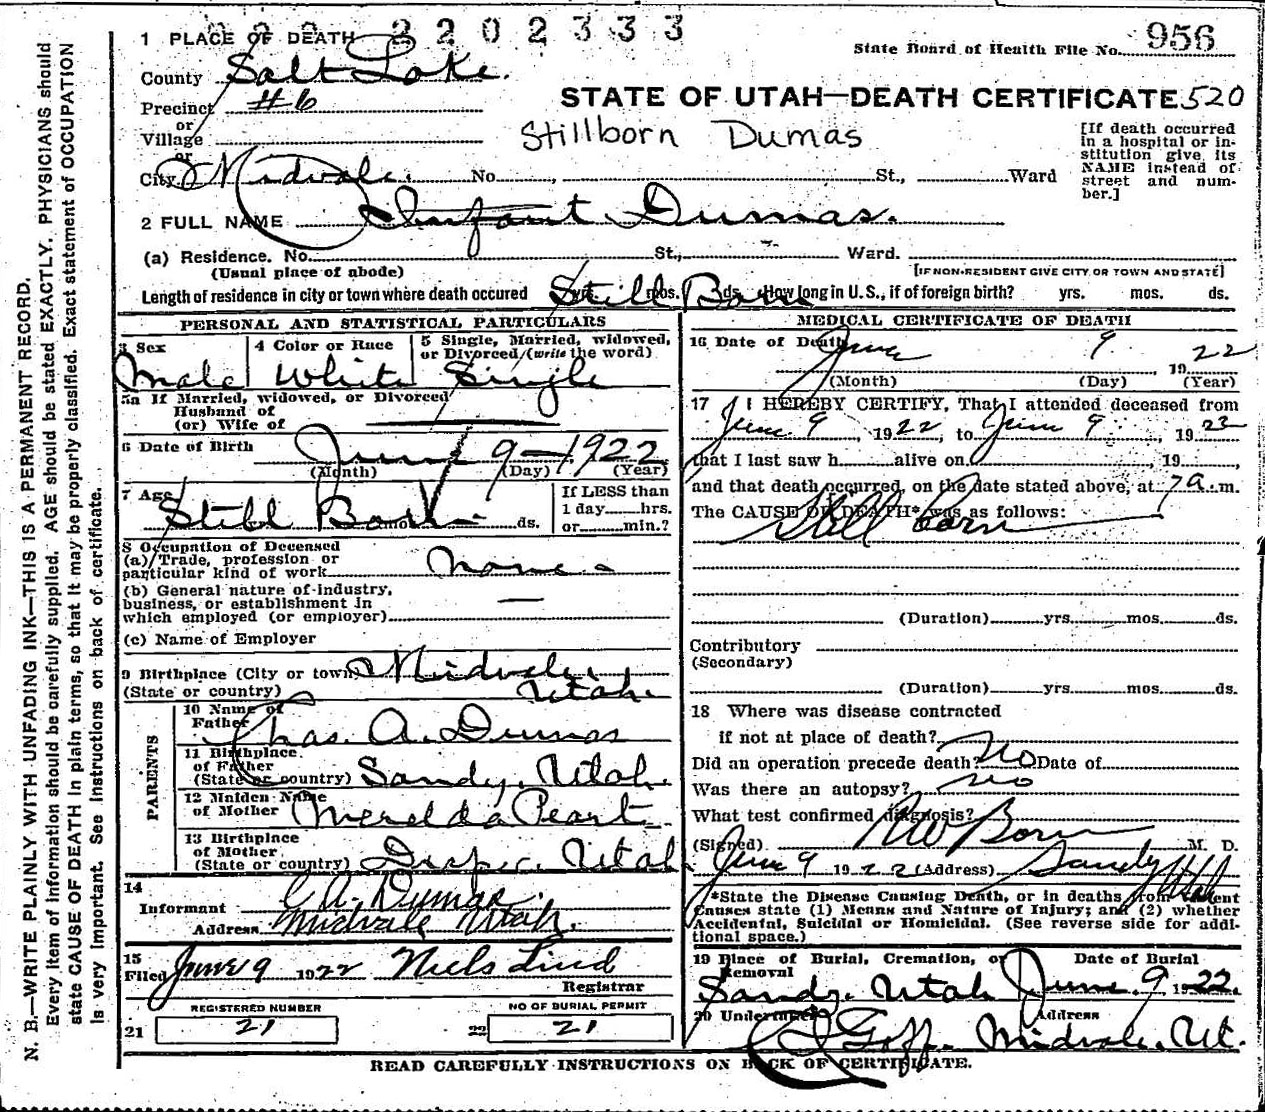 2202333
1 PLACE OF DEATH
State Board of Health File No. 956
County Salt Lake.
Precinct #6
STATE OF UTAH—DEATH CERTIFICATE 520
or
Village
Stillborn Dumas
[If death occurred in a hospital or institution give its NAME instead of street and number.]
or
City Midvale. No. , St., Ward
2 FULL NAME Infant Dumas.
(a) Residence. No. St., Ward.
(Usual place of abode)
[IF NON-RESIDENT GIVE CITY OR TOWN AND STATE]
Length of residence in city or town where death occured yrs. mos. ds. Still Born How long in U.S., if of foreign birth? yrs. mos. ds.
PERSONAL AND STATISTICAL PARTICULARS
3 Sex
4 Color or Race
5 Single, Married, widowed, or Divorced (write the word)
Male White Single
5a If Married, widowed, or Divorced
Husband of
(or) Wife of
6 Date of Birth June 9-1922
(Month) (Day) (Year)
7 Age Still Born mos. ds.
If LESS than
1 day hrs.
or min.?
8 Occupation of Deceased
(a) Trade, profession or
particular kind of work none -
(b) General nature of industry,
business, or establishment in
which employed (or employer) —
(c) Name of Employer
9 Birthplace (City or town) Midvale,
(State or country) Utah.
PARENTS
10 Name of
Father Chas. A. Dumas
11 Birthplace
of Father
(State or country) Sandy, Utah.
12 Maiden Name
of Mother Merelda Peart
13 Birthplace
of Mother
(State or country) Draper, Utah
14
Informant C A. Dumas.
Address Midvale Utah.
15
Filed June 9 1922 Niels Lind
Registrar
REGISTERED NUMBER
21 21
NO OF BURIAL PERMIT
22 21
MEDICAL CERTIFICATE OF DEATH
16 Date of Death June 9, 1922
(Month) (Day) (Year)
17 I HEREBY CERTIFY, That I attended deceased from
June 9, 1922, to June 9, 1922
that I last saw h alive on , 19 ,
and that death occurred, on the date stated above, at 7 a. m.
The CAUSE OF DEATH* was as follows:
Still born
(Duration) yrs. mos. ds.
Contributory
(Secondary)
(Duration) yrs. mos. ds.
18 Where was disease contracted
if not at place of death?
Did an operation precede death? no Date of
Was there an autopsy? no
What test confirmed diagnosis?
(Signed) M. D.
June 9 1922 (Address) Sandy Utah
*State the Disease Causing Death, or in deaths from Violent
Causes state (1) Means and Nature of Injury; and (2) whether
Accidental, Suicidal or Homicidal. (See reverse side for additional space.)
19 Place of Burial, Cremation, or Removal
Date of Burial
Sandy, Utah June 9 1922.
20 Undertaker Address
Goff. Midvale, Ut.
READ CAREFULLY INSTRUCTIONS ON BACK OF CERTIFICATE.
N. B.—WRITE PLAINLY WITH UNFADING INK—THIS IS A PERMANENT RECORD.
Every item of information should be carefully supplied. AGE should be stated EXACTLY. PHYSICIANS should
state CAUSE OF DEATH in plain terms, so that it may be properly classified. Exact statement of OCCUPATION
is very important. See instructions on back of certificate.